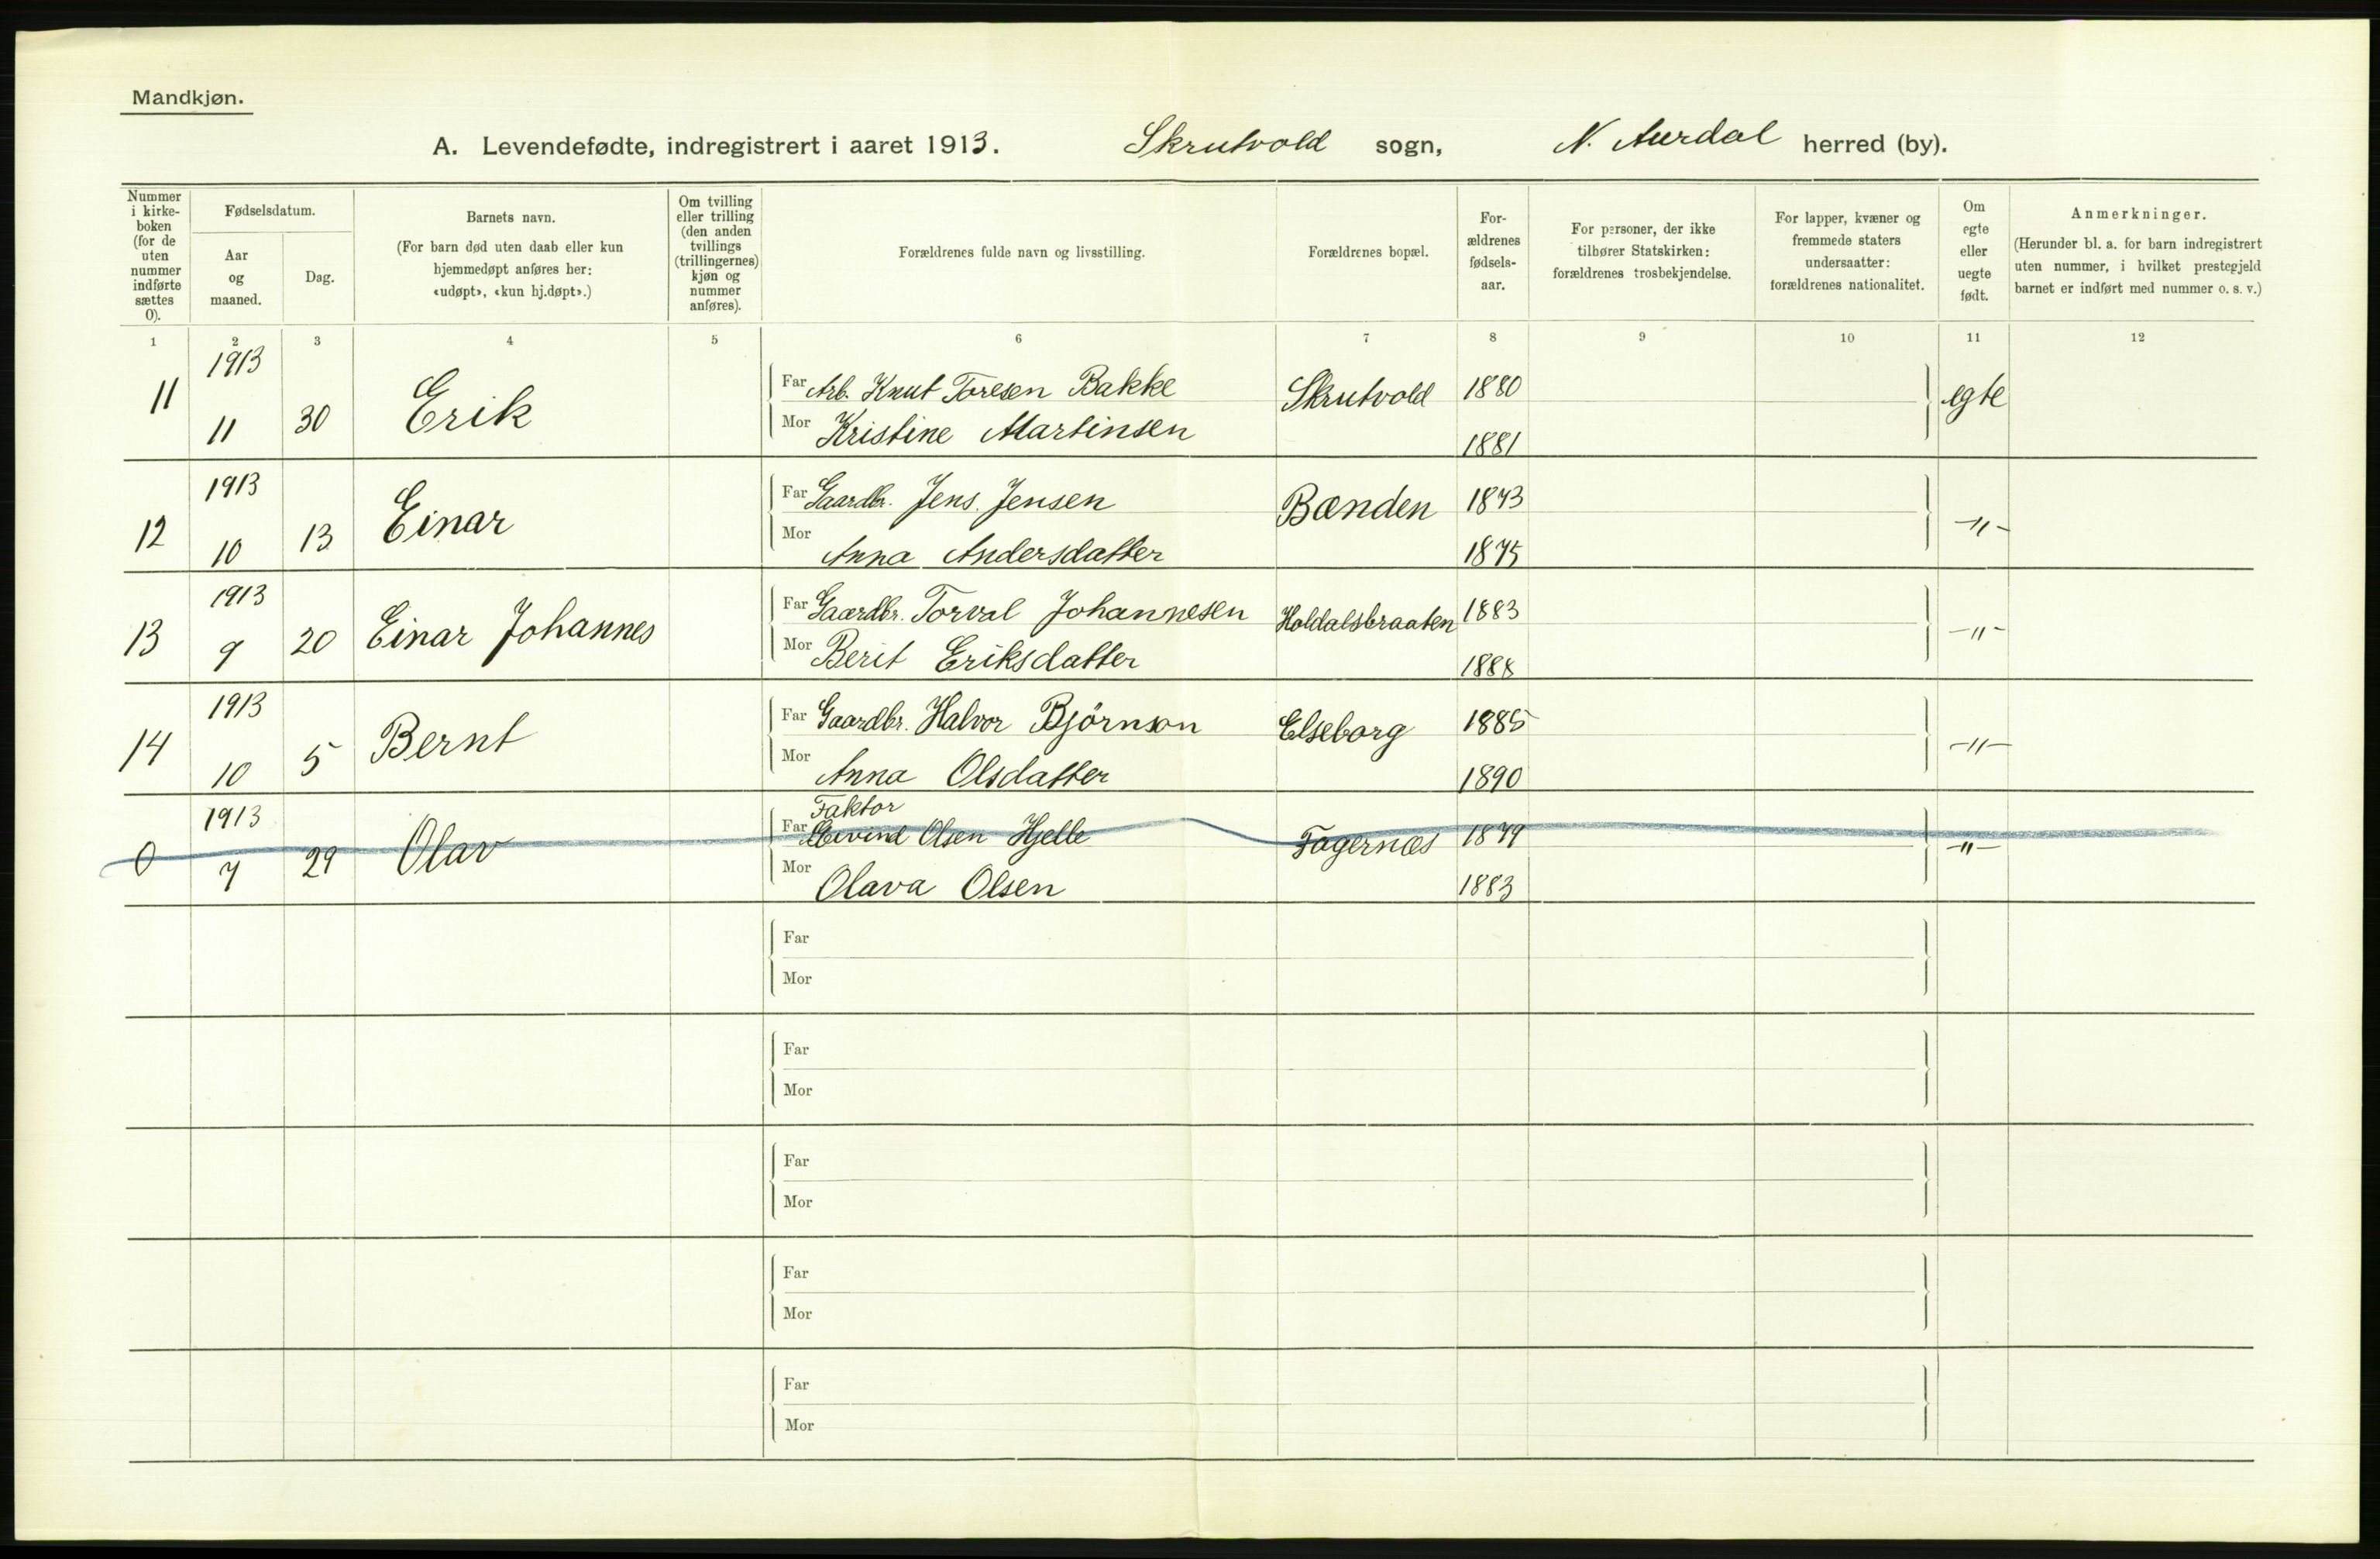 Mandkjøn.
A. Levendefødte, indregistrert i aaret 1913. Skrutvold sogn, N. Aurdal herred (by).
Nummer i kirke-boken (for de uten nummer indførte sættes 0).
Fødselsdatum.
Aar og maaned.
Dag.
Barnets navn.
(For barn død uten daab eller kun hjemmedøpt anføres her: «udøpt», «kun hj.døpt».)
Om tvilling eller trilling (den anden tvillings (trillingernes) kjøn og nummer anføres).
Forældrenes fulde navn og livsstilling.
Forældrenes bopæl.
For-ældrenes fødsels-aar.
For personer, der ikke tilhører Statskirken: forældrenes trosbekjendelse.
For lapper, kvæner og fremmede staters undersaatter: forældrenes nationalitet.
Om egte eller uegte født.
Anmerkninger.
(Herunder bl. a. for barn indregistrert uten nummer, i hvilket prestegjeld barnet er indført med nummer o. s. v.)
1 2 3 4 5 6 7 8 9 10 11 12
1913
11 11 30 Erik Far Arb. Knut Toresen Bakke Skrutvold 1880 egte
Mor Kristine Martinsen 1881
1913
12 10 13 Einar Far Gaardbr. Jens Jensen Bænden 1873 -"-
Mor Anna Andersdatter 1875
1913
13 9 20 Einar Johannes Far Gaardbr. Torval Johannesen Holdalsbraaten 1883 -"-
Mor Berit Eriksdatter 1888
1913
14 10 5 Bernt Far Gaardbr. Halvor Bjørnson Elseborg 1885 -"-
Mor Anna Olsdatter 1890
1913 Faktor
0 7 29 Olav Far Eivind Olsen Hjelle Fagernæs 1879 -"-
Mor Olava Olsen 1883
Far
Mor
Far
Mor
Far
Mor
Far
Mor
Far
Mor